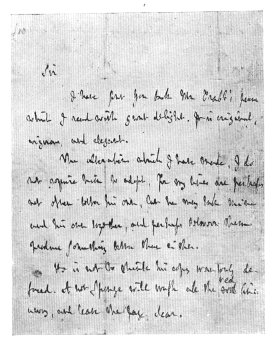 Sir
I have sent you back Mr Crabb's poem
which I read with great delight. It is original,
vigorous, and elegant.
The alterations which I have made, I do
not require him to adopt, for my lines are perhaps
not often better than his own, but he may take mine
and his own together, and perhaps between them
produce something better than either.
He is not to think his copy wantonly de
faced. A wet sponge will wash all the red lines
away, and leave the page clear.